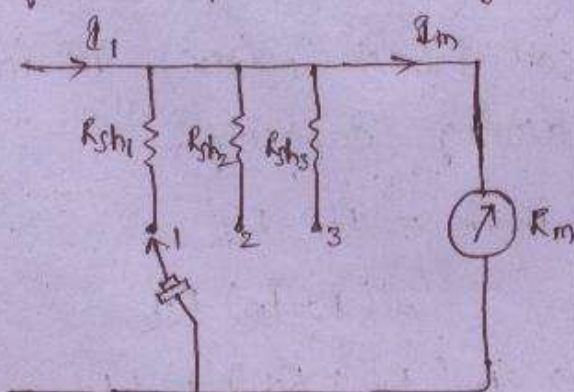 I1
Im
Rsh1
Rsh2
Rsh3
1
2
3
Rm